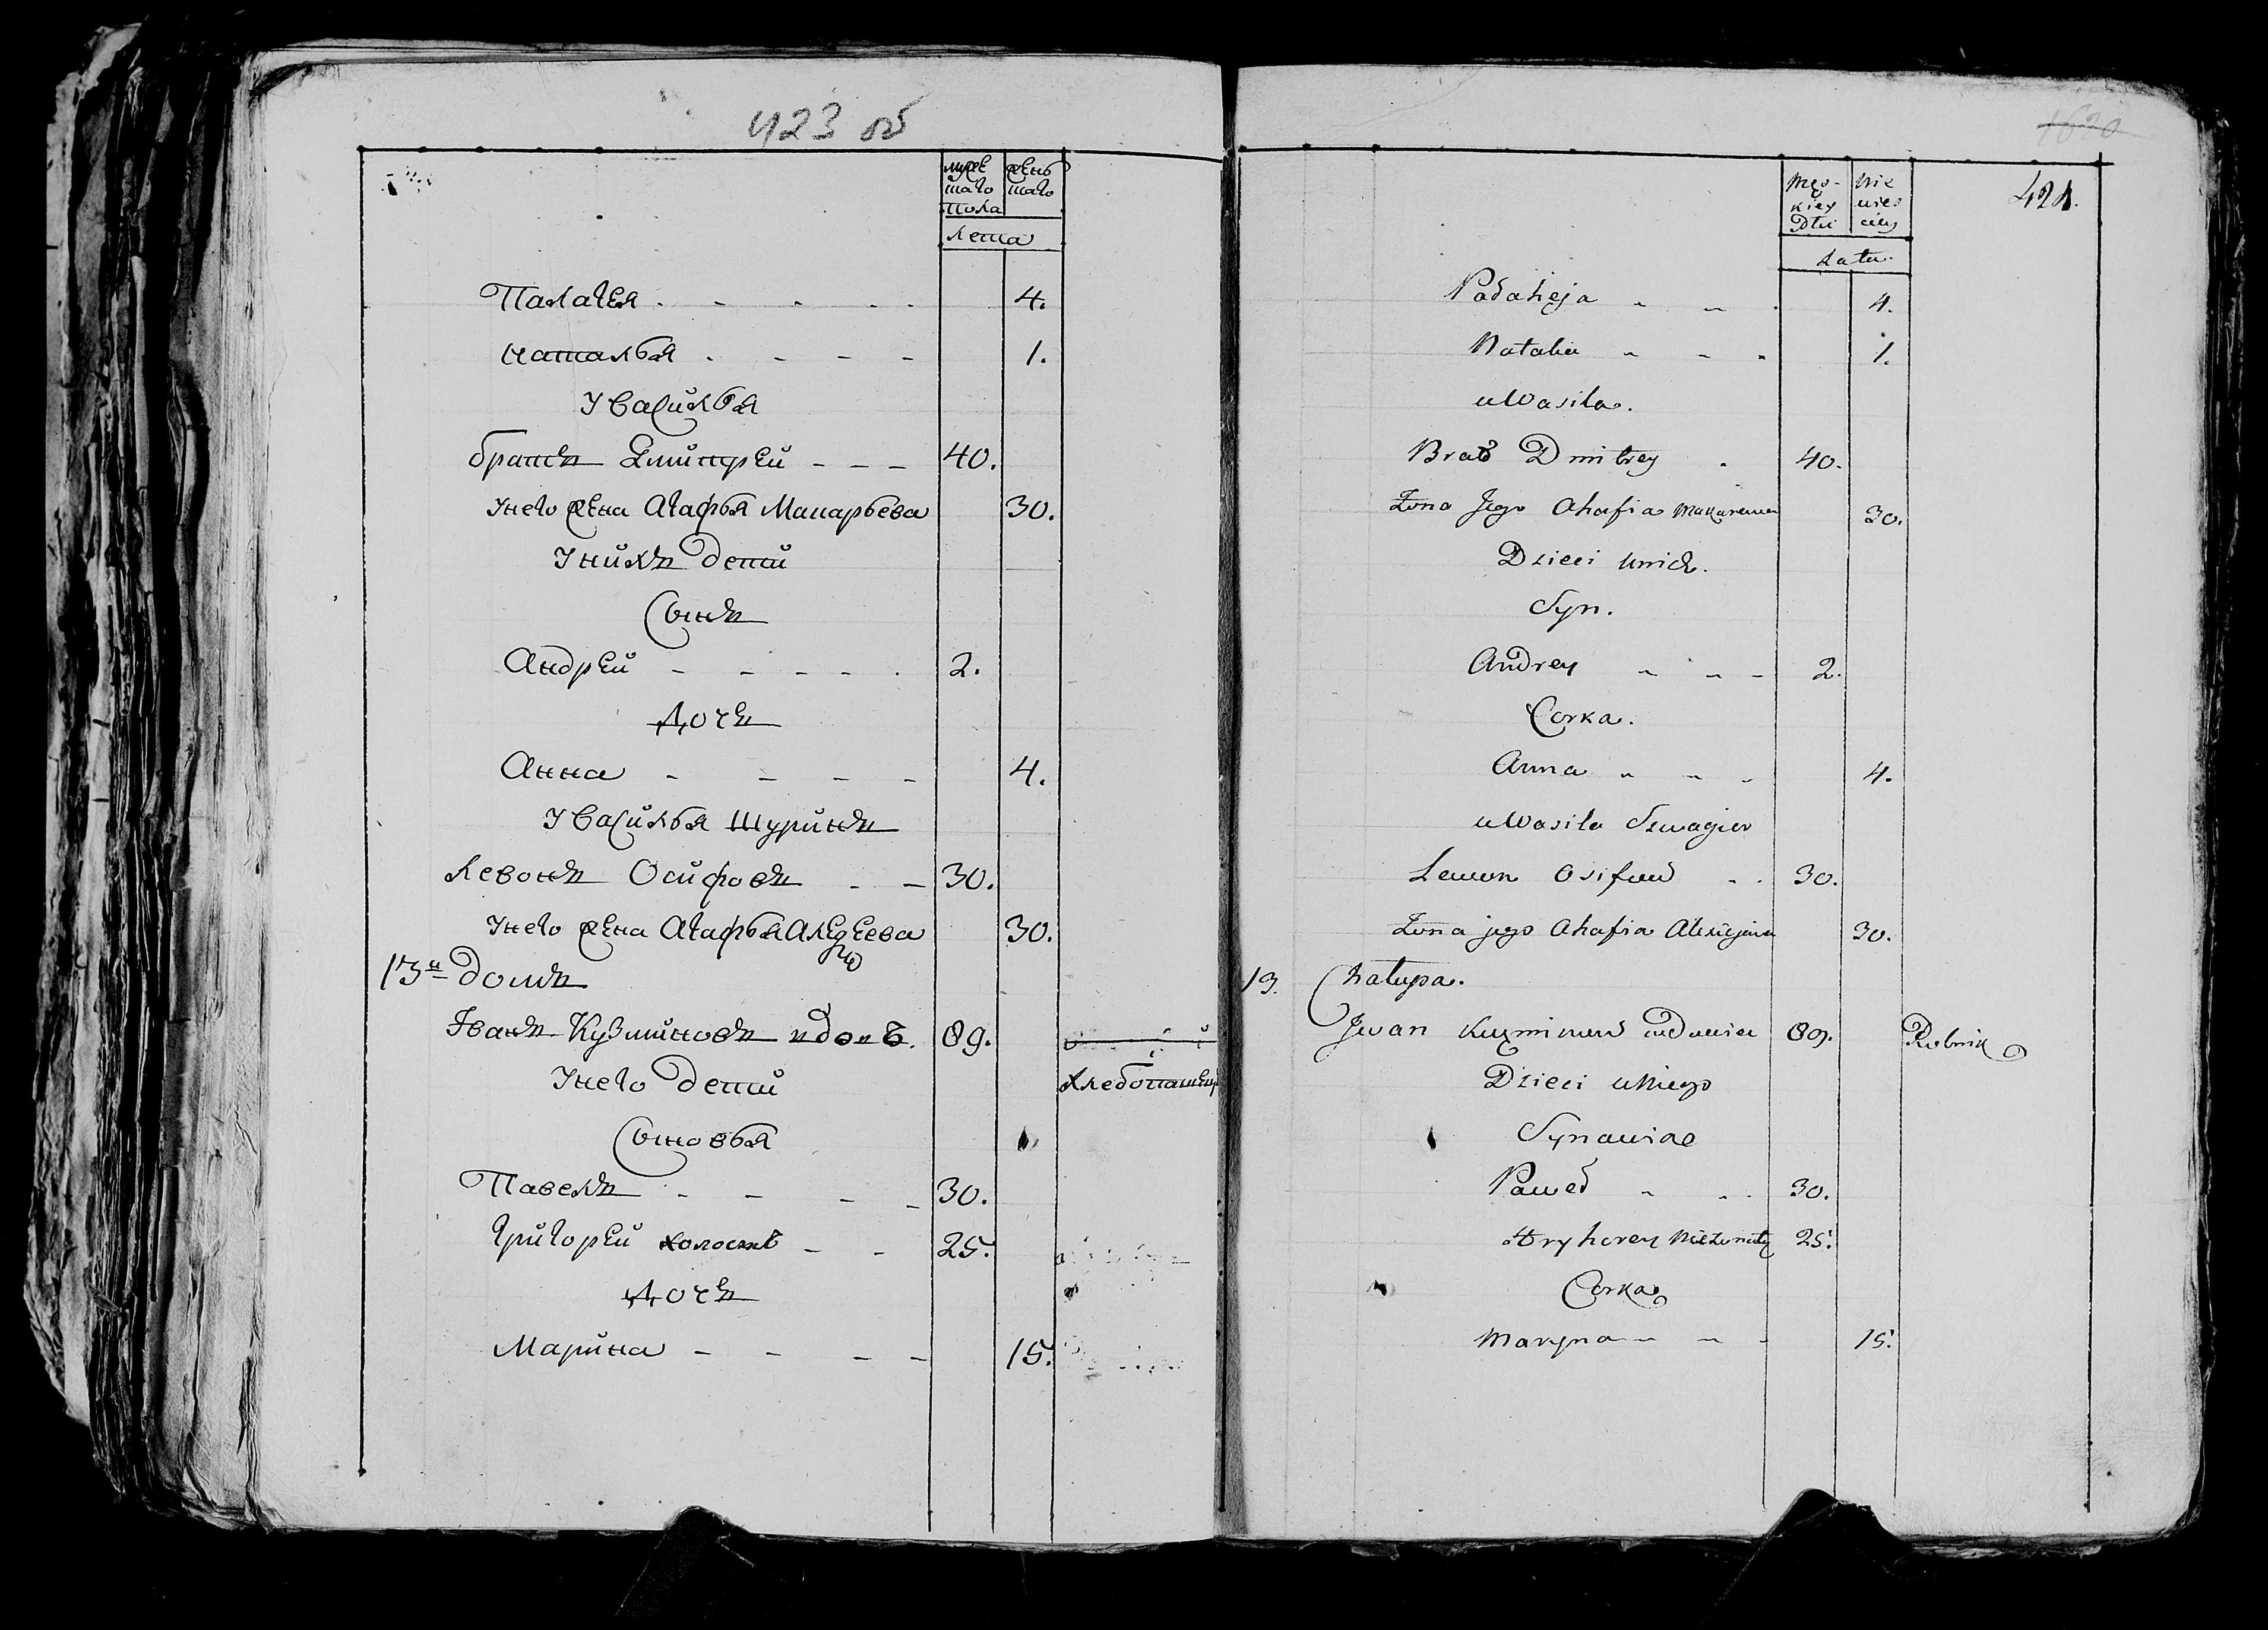 423 об
муже
жень
шаго
пола
шаго
лета
Палагея 4.
Наталья 1.
У Василья
братъ Дмитрей 40.
У него жена Агафья Макарьева 30.
У нихъ дети
Сынъ
Андрей 2.
Дочь
Анна 4.
У Василья Шуринъ
Левонъ Осифовъ 30.
У него жена Агафья Алексеева 30.
13й домъ
Іванъ Кузминовъ вдовъ. 89.
У него дети хлебопашец
Сыновья
Павелъ 30.
Григорей холостъ 25.
Дочь
Марина 15.
1620
424.
Męz-
kiey
Płci
Nie
wies
ciey
Lata.
Pałaheja 4.
Natalia 1.
u Wasila.
Brat Dmitrey 40.
Żona Jego Ahafia Makarewa 30.
Dzieci unich.
Syn.
Andrey 2.
Corka.
Anna 4.
u Wasila Szwagier
Lewon Osifow 30.
Żona jego Ahafia Alexiejewa 30.
13. Chałupa.
Jwan Kuzminow wdowiec 89. Rolnik
Dzieci uniego
Synowiae
Paweł 30.
Hryhorey nieżonaty 25.
Corka
Maryna 15.